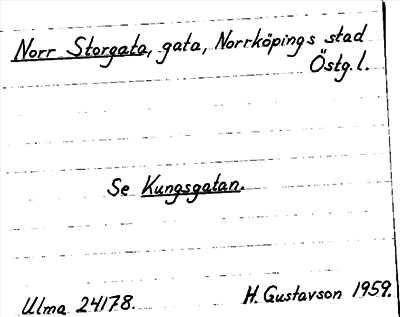 Norr Storgata, gata, Norrköpings stad
Östg. l.
Se Kungsgatan.
Ulma 24178. H. Gustavson 1959.